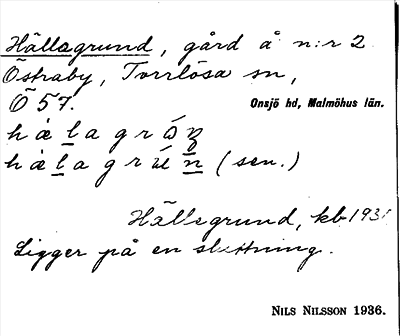 Hällagrund, gård å n:r 2
Östraby, Torrlösa sn,
Ö 57.
Onsjö hd, Malmöhus län.
h a l a g r
h à l a g r n (sen.)
Hällsgrund, kb 193
Ligger på en sluttning.
NILS NILSSON 1936.